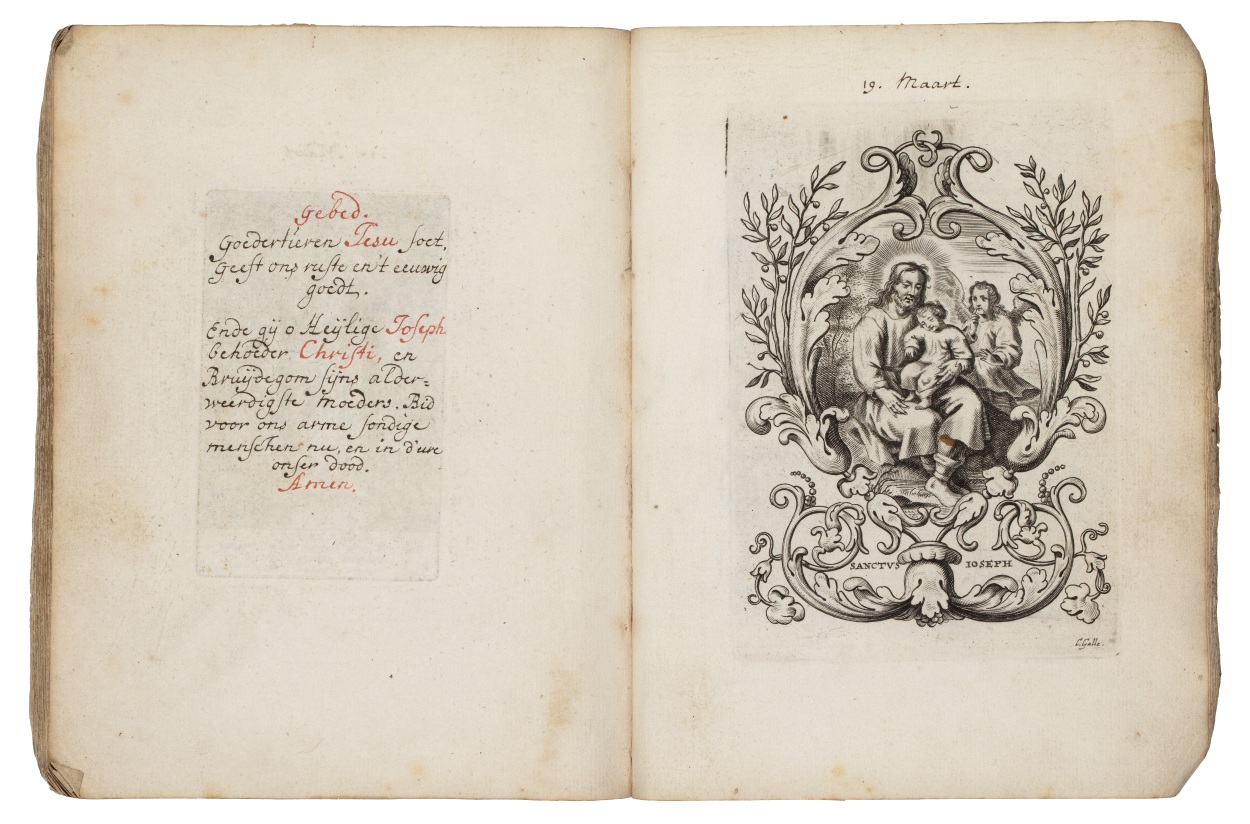 gebed.
Goedertieren Jesu soet,
Geeft ons ruste en't eeuwig
goedt.
Ende gij o Heijlige Joseph
behoeder Christi, en
Bruijdegom sijns alder=
weerdigste moeders. Bid
voor ons arme sondige
menschen nu, en in d'ure
onser dood.
Amen.
19. Maart.
SANCTVS IOSEPH
C. Galle.